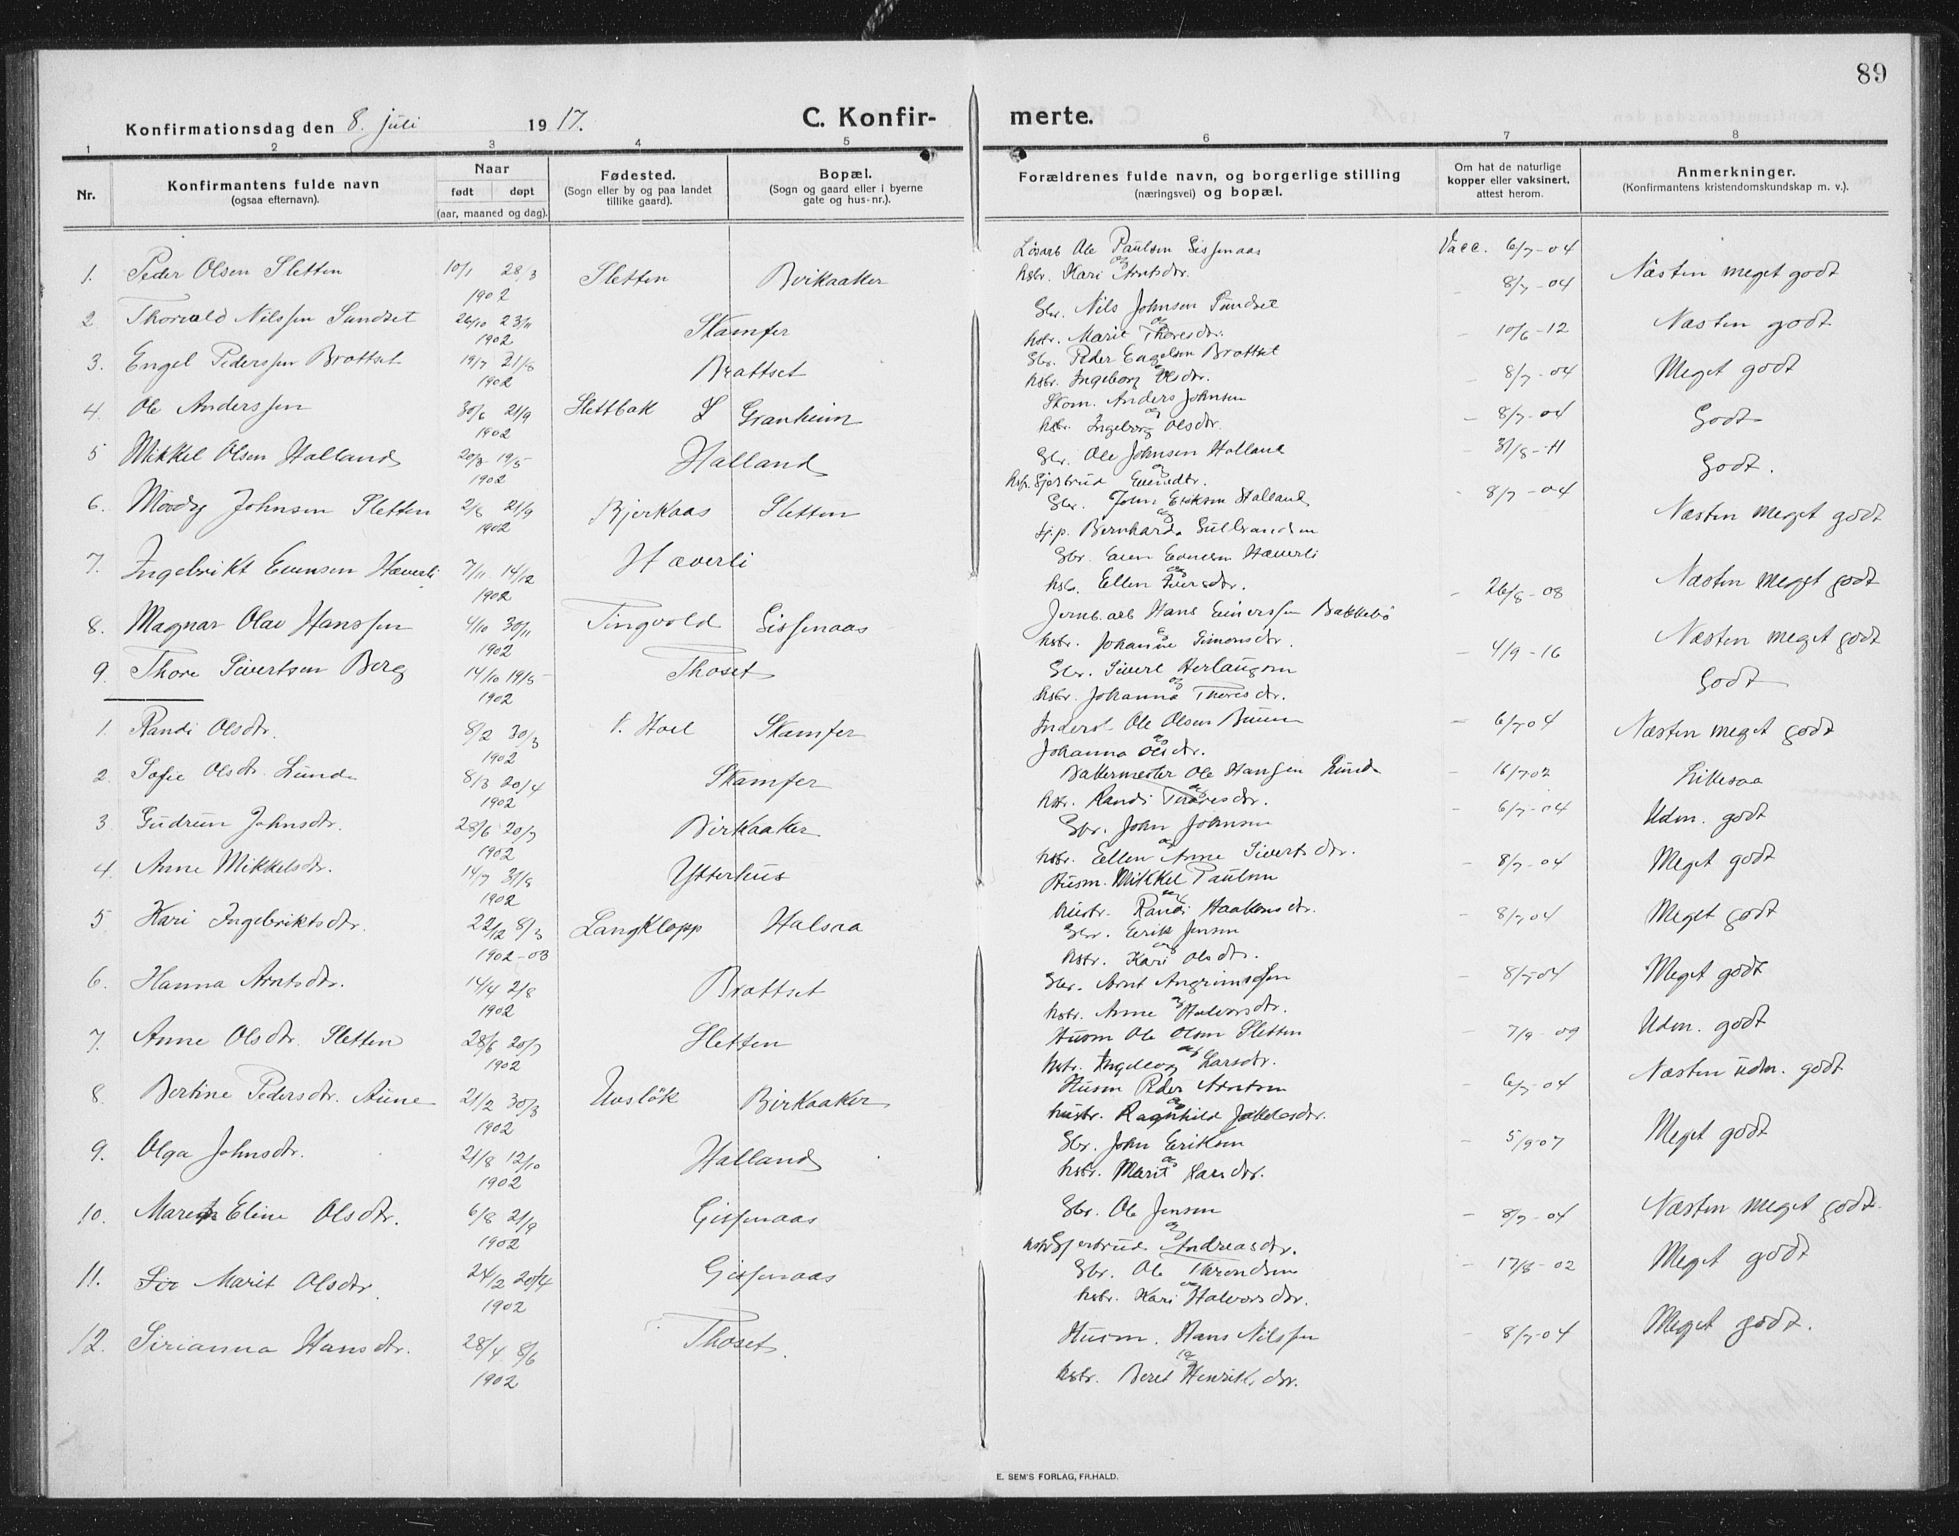 89
Konfirmationsdag den 8. juli 1917. C. Konfirmerte.
1 2 3 4 5 6 7 8
Nr. Konfirmantens fulde navn (ogsaa efternavn). Naar født døpt (aar, maaned og dag). Fødested. (Sogn eller by og paa landet tillike gaard). Bopæl. (Sogn og gaard eller i byerne gate og hus-nr.). Forældrenes fulde navn, og borgerlige stilling (næringsvei) og bopæl. Om hat de naturlige kopper eller vaksinert, attest herom. Anmerkninger. (Konfirmantens kristendomskundskap m. v.).
1. Peder Olsen Sletten 10/1 28/3 1902 Sletten Birkaaker Løsarb Ole Paulsen Gissenaas og hstr. Kari Arntsdtr. Vacc. 6/7-04 Næsten meget godt
2 Thorvald Nilssen Sundset 26/10 23/11 1902 Skamfer Gbr. Nils Johnsen Sundset og hstr. Marit Thoresdtr. - 8/7-04 Næsten godt
3. Engel Pederssen Brattset 19/7 21/8 1902 Brattset Gbr. Peder Engelsen Brattset og hstr. Ingeborg Olsdtr. - 10/6-12 Meget godt
4. Ole Anderssen 30/6 21/9 1902 Slettbak Granheim Skom. Anders Johnsen og hstr. Ingeborg Olsdtr. - 8/7-04 Godt
5 Mikkel Olsen Halland 20/3 19/5 1902 Halland Gbr. Ole Johnsen Halland og hstr. Gjertrud Evendtr. - 8/7-04 Godt.
6. Moody Johnsen Sletten 2/8 21/9 1902 Bjerkaas Sletten Gbr. John Eriksen Halland og Bernharda Gulbrandsen - 31/8-11 Næsten meget godt
7. Ingebrikt Evensen Hæverli 7/11 14/12 1902 Hæverli Gbr. Even Evensen Hæverli og hstr. Ellen Iversdtr. - 8/7-04 Næsten meget godt
8. Magnar Olav Hanssen 4/10 30/11 1902 Tingvold Gissenaas Jernb.arb Hans Einerssen Bakkebø hstr. Johanne Simonsdtr. - 26/8-08 Næsten meget godt
9. Thore Sivertsen Berg 14/10 19/5 1902 Thoset Gbr. Sivert Herlaugsen og hstr. Johanna Thoresdtr. - 4/9-16 Godt
1. Randi Olsdtr. 8/2 30/3 1902 Hoel Skamfer Inderst Ole Olsen Buun og Johanna Olsdtr. - 6/7 04 Næsten meget godt
2. Sofie Olsdtr. Lund 8/3 20/4 1902 Skamfer Bakermester Ole Hansen Lund og hstr. Randi Thoresdtr. - 16/7 02 Likesaa
3. Gudrun Johnsdtr. 28/6 20/7 1902 Birkaaker Gbr. John Johnsen og hstr. Ellen Anne Sivertsdtr. - 6/7-04 Udm. godt
4. Anne Mikkelsdtr. 14/7 31/8 1902 Ytterhus Husm. Mikkel Paulsen og hustr. Randi Haakensdtr. - 8/7-04 Meget godt
5 Kari Ingebriktsdtr. 22/12 8/3 1902-03 Langklopp Halsaa Gbr. Eerik Jensen og hstr. Kari Olsdtr. - 8/7 04 Meget godt
6. Hanna Arntsdtr. 14/4 2/8 1902 Brattset Gbr. Arnt Angrimsen og hstr. Anne Halvorsdtr. - 8/7-04 Meget godt
7. Anne Olsdtr. Sletten 28/6 20/7 1902 Sletten Husm Ole Olsen Sletten og hstr. Ingeborg Larsdtr. - 7/9-09 Udm. godt
8. Bertine Pedersdtr. Aune 21/2 30/3 1902 Uvsløk Birkaaker Husm Peder Arntsen og hustr. Ragnhild Jakobsdtr. - 6/7-04 Næsten udm. godt
9. Olga Johnsdtr. 21/8 12/10 1902 Halland Gbr. John Eriksen og hstr. Marit Larsdtr. - 5/9 07 Meget godt
10. Marit Eline Olsdtr. 6/8 21/9 1902 Gissenaas Gbr. Ole Jensen og hstr Gjertrud Andreasdtr. - 8/7-04 Næsten meget godt
11. Marit Olsdtr. 24/2 20/4 1902 Gissenaas Gbr. Ole Throndsen og hstr. Kari Halvorsdtr. - 17/8-02 Meget godt
12. Sirianna Hansdtr. 28/4 8/6 1902 Thoset. Husm. Hans Nilssen og hstr. Beret Henriksdtr. - 8/7-04 Meget godt.
E. SEM'S FORLAG, FR.HALD.